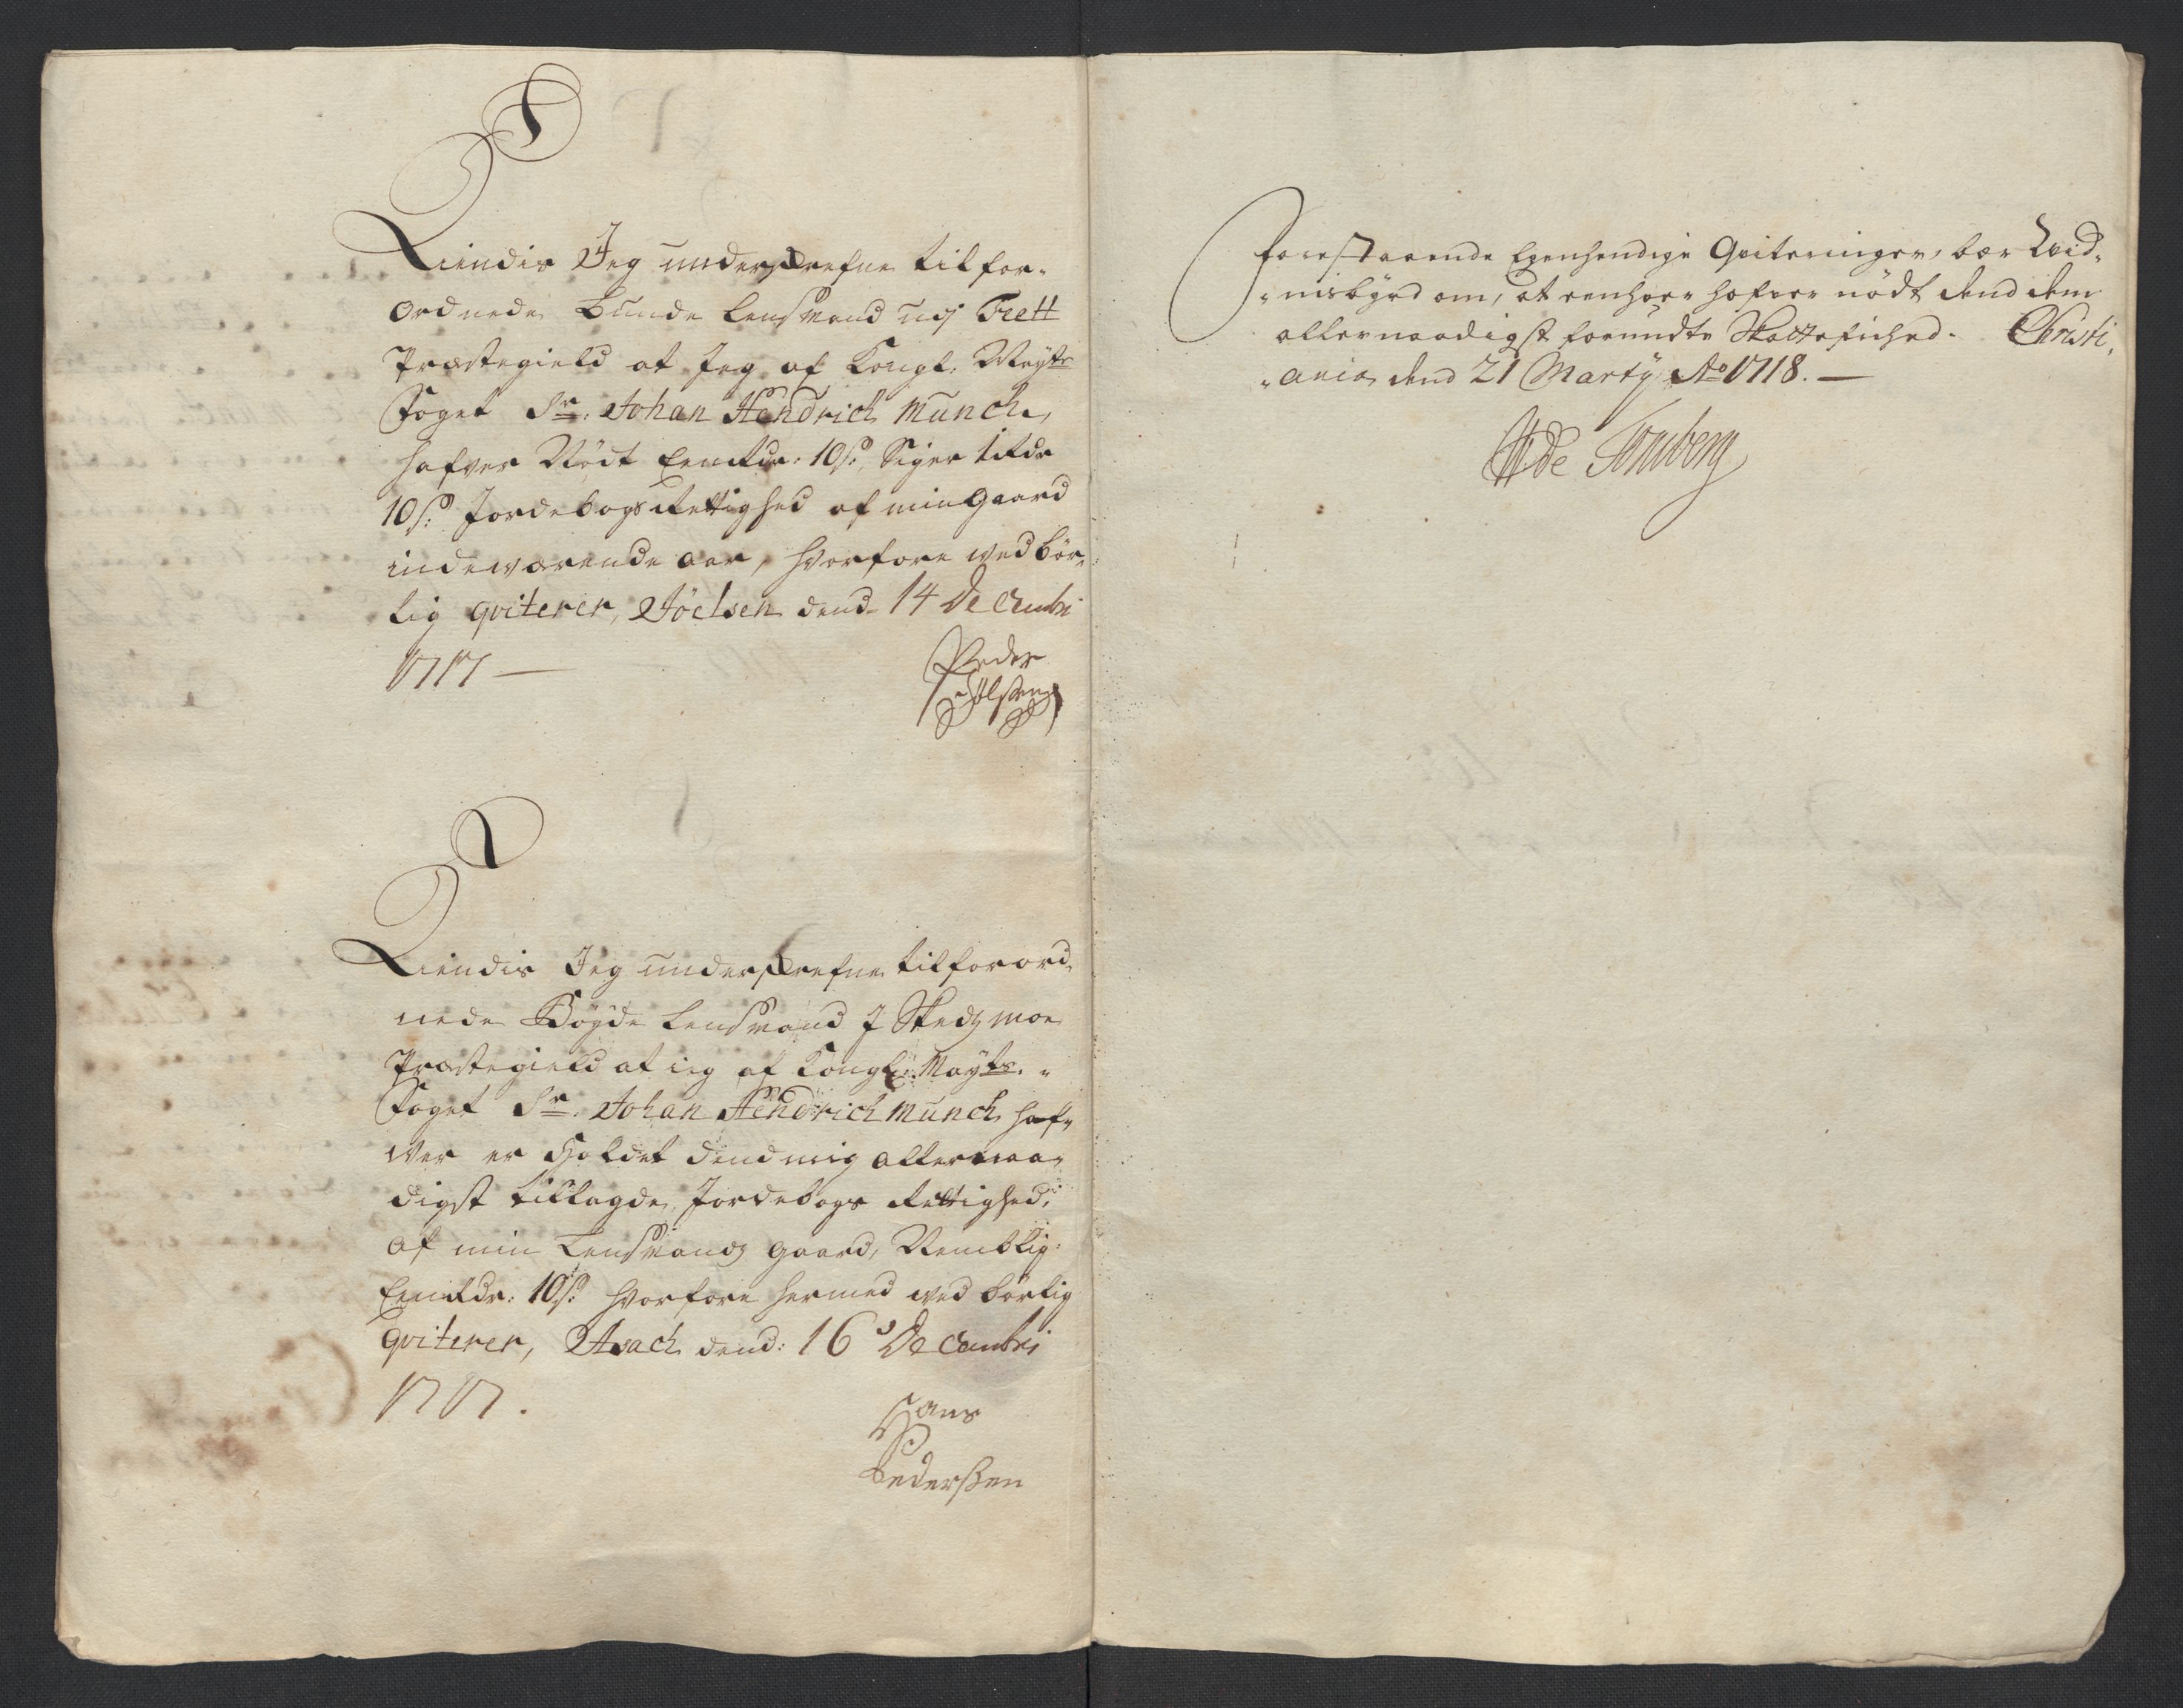 Kiendis Jeg underskrefne tilfor-
ordnede Bunde Lensmand udj Trett
Præstegield at Jeg af Kongl. Mayts
Foget Sr. Johan Hendrich Munch,
hafver Nödt 10 s: Siger
10 s: Jordebogs Rettighed af min gaard
indeværende aar, hvorfore ved bör-
lig qviterer, dend 14 Decembri
1717 —
Peder
Kiendis Jeg underskrefne tilforord-
nede Böyde Lensmand J Skedzmoe
Præstegield at ieg af Kongl: Mayts.
Foget Sr. Johan Hendrich Munch haf-
ver er holdet dend mig allernaa-
digst tillagde Jordebogs Rettighed,
af min Lensmands gaard, Nemblig:
10 s: hvorfore hermed ved börlig
qviterer, Asach dend: 16 Decembri
1717.
Hans
Pederßen
Forestaaende Egenhendige Qviteringer, bær Vid-
nisbyrd om, at enhver hafver nödt dend dem
allernaadigst forundte Skattefrihed. Christi-
ania dend 21 Marty Ao 1718. —